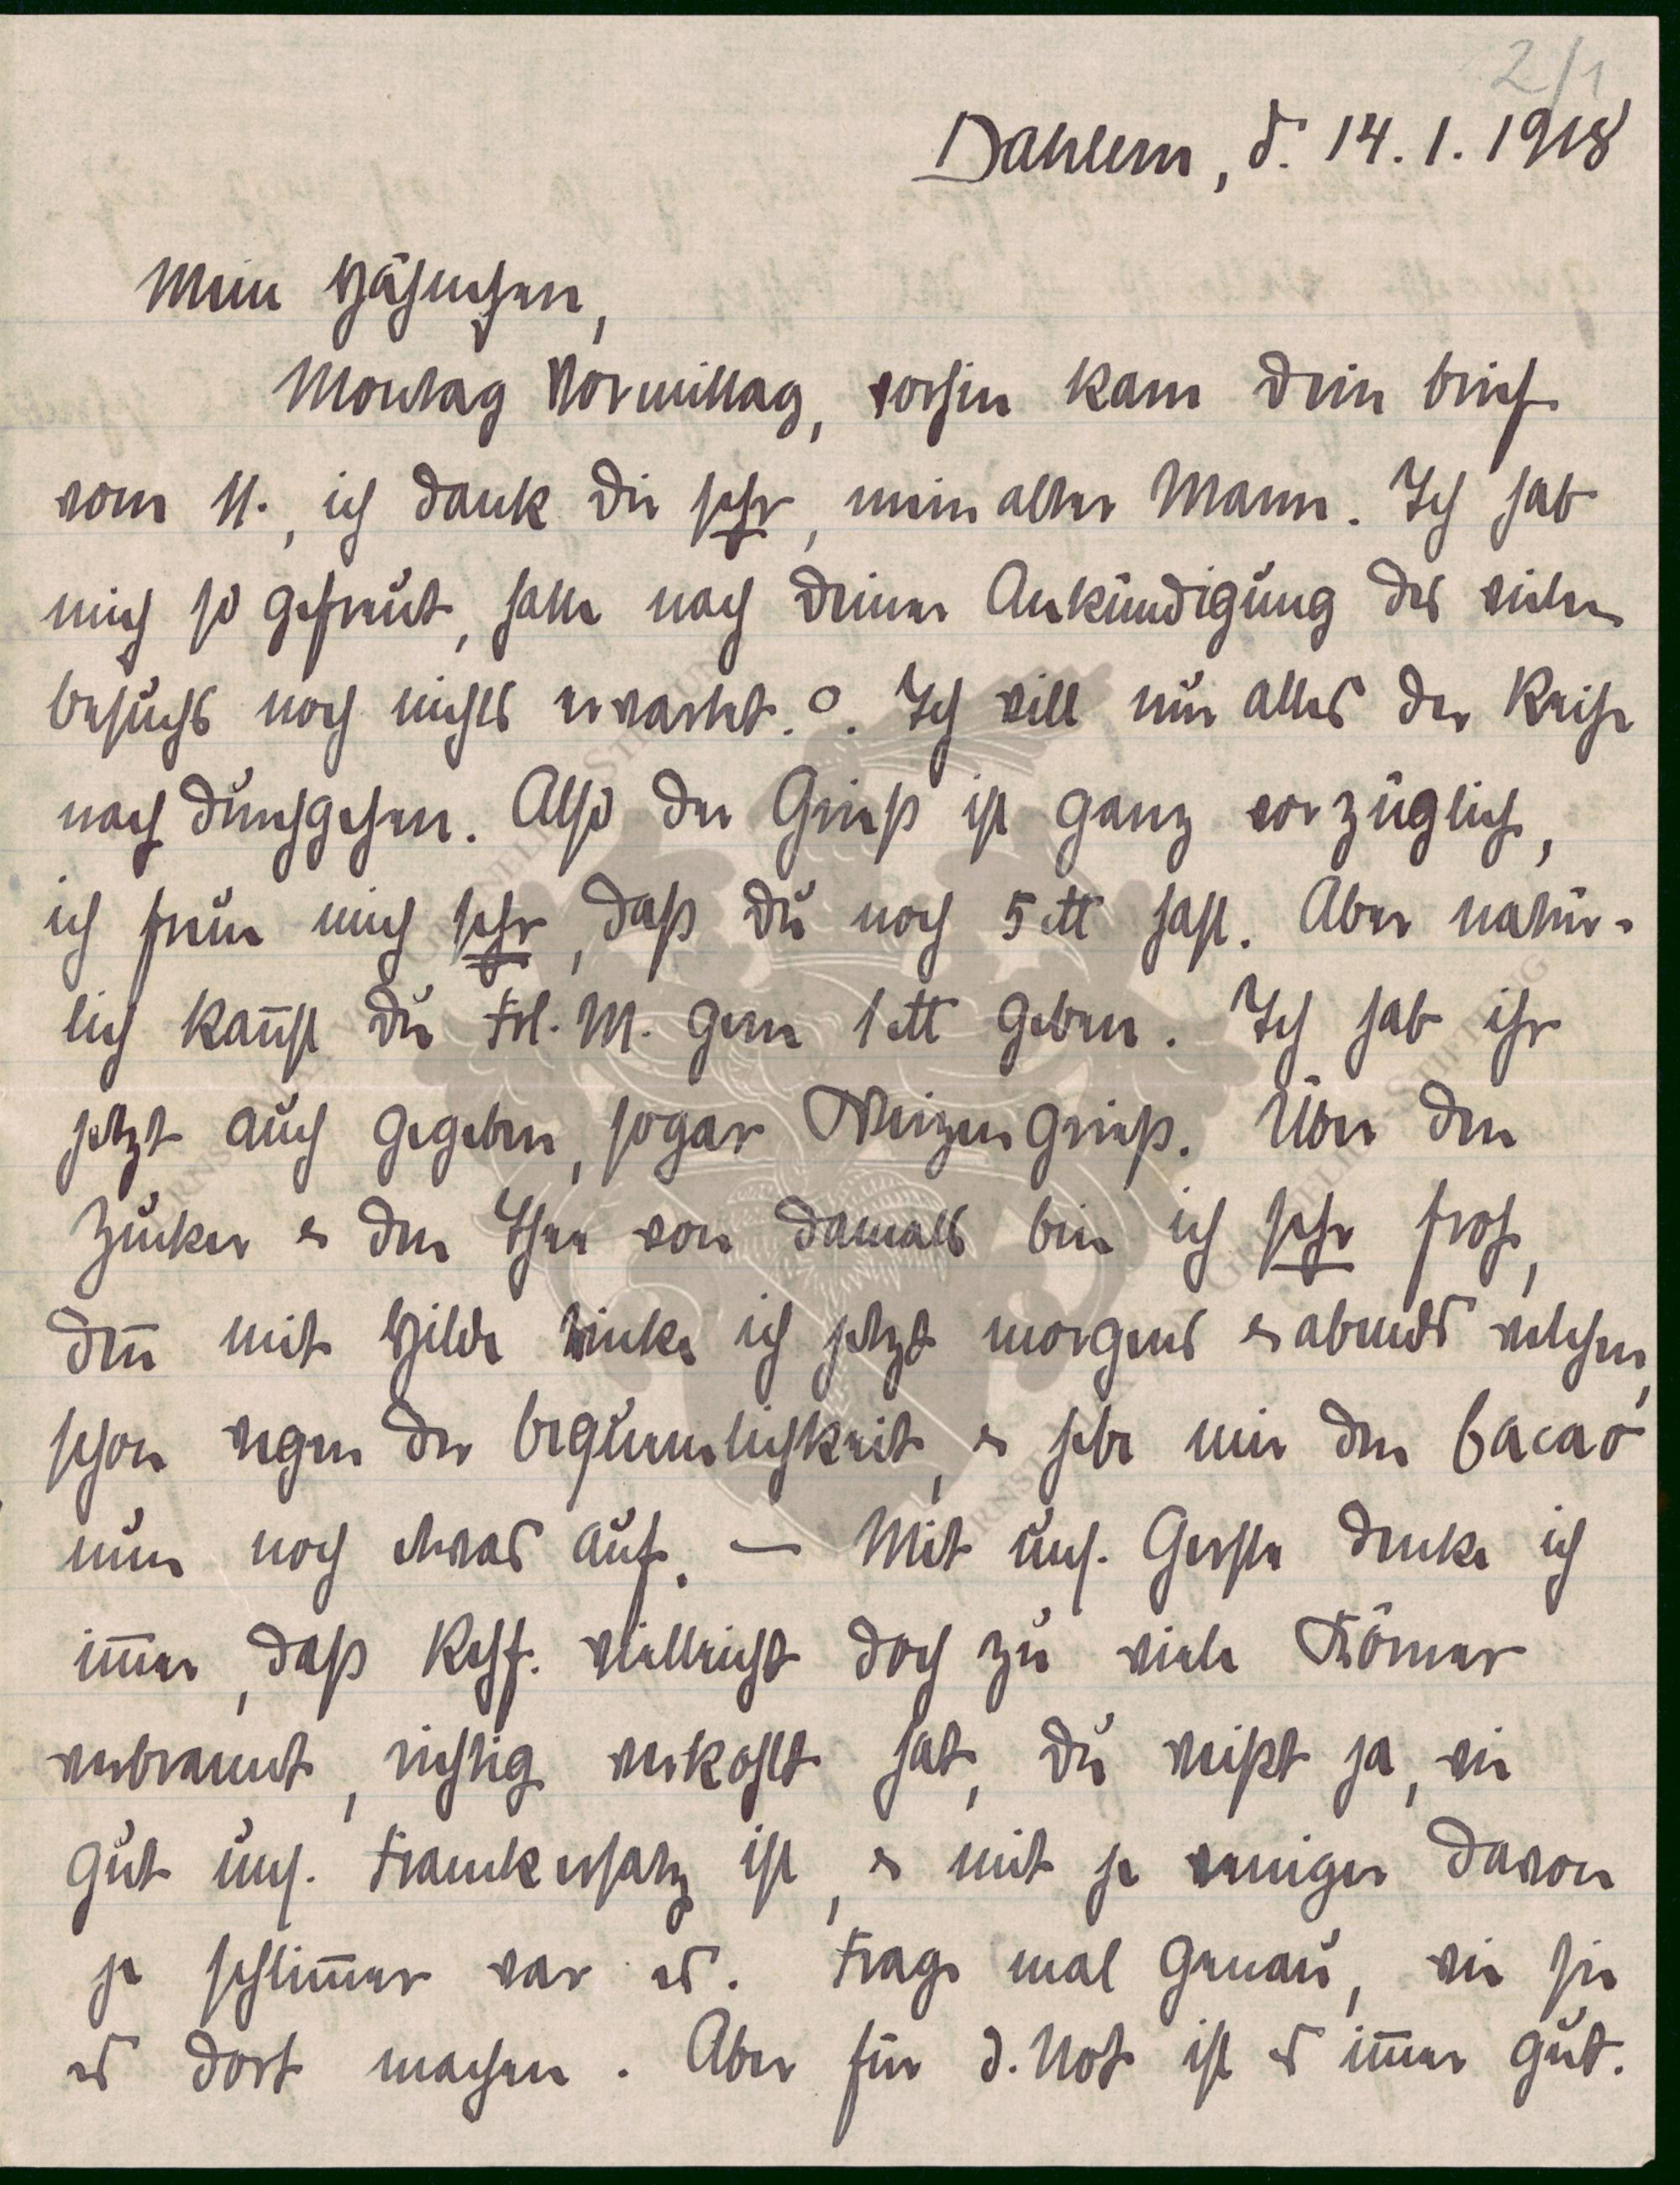 2/1
Dahlem, d. 14.1.1918
Mein Häschen,
Montag Vormittag, vorhin kam dein brief
vom 11., ich dank dir sehr, mein alter Mann. Ich hab
mich so gefreut, hatte nach deiner Ankündigung des vielen
besuchs noch nichts erwartet. Ich will nun alles der Reihe
nach durchgehen. Also der Grieß ist ganz vorzüglich,
ich freue mich sehr, daß du noch 5 ℔ hast. Aber natür-
lich kan̄st du Frl. M. gern 1 ℔ geben. Ich hab ihr
jetzt auch gegeben, sogar Weizengrieß. Über den
Zucker & den Thee von damals bin ich sehr froh,
den̄ mit Hilde trinke ich jetzt morgens & abends welchen,
schon wegen der bequemlichkeit, & hebe mir den Cacao
nun noch etwas auf. — Mit uns. Gerste denke ich
im̄er, daß Kehf. vielleicht doch zu viele Körner
verbrannt, richtig verkohlt hat, du weißt ja, wie
gut uns. Franckersatz ist, & mit je weniger davon
je schlim̄er war es. Frage mal genau, wie sie
es dort machen. Aber für d. Not ist es im̄er gut.
GERNS STIFTUNG